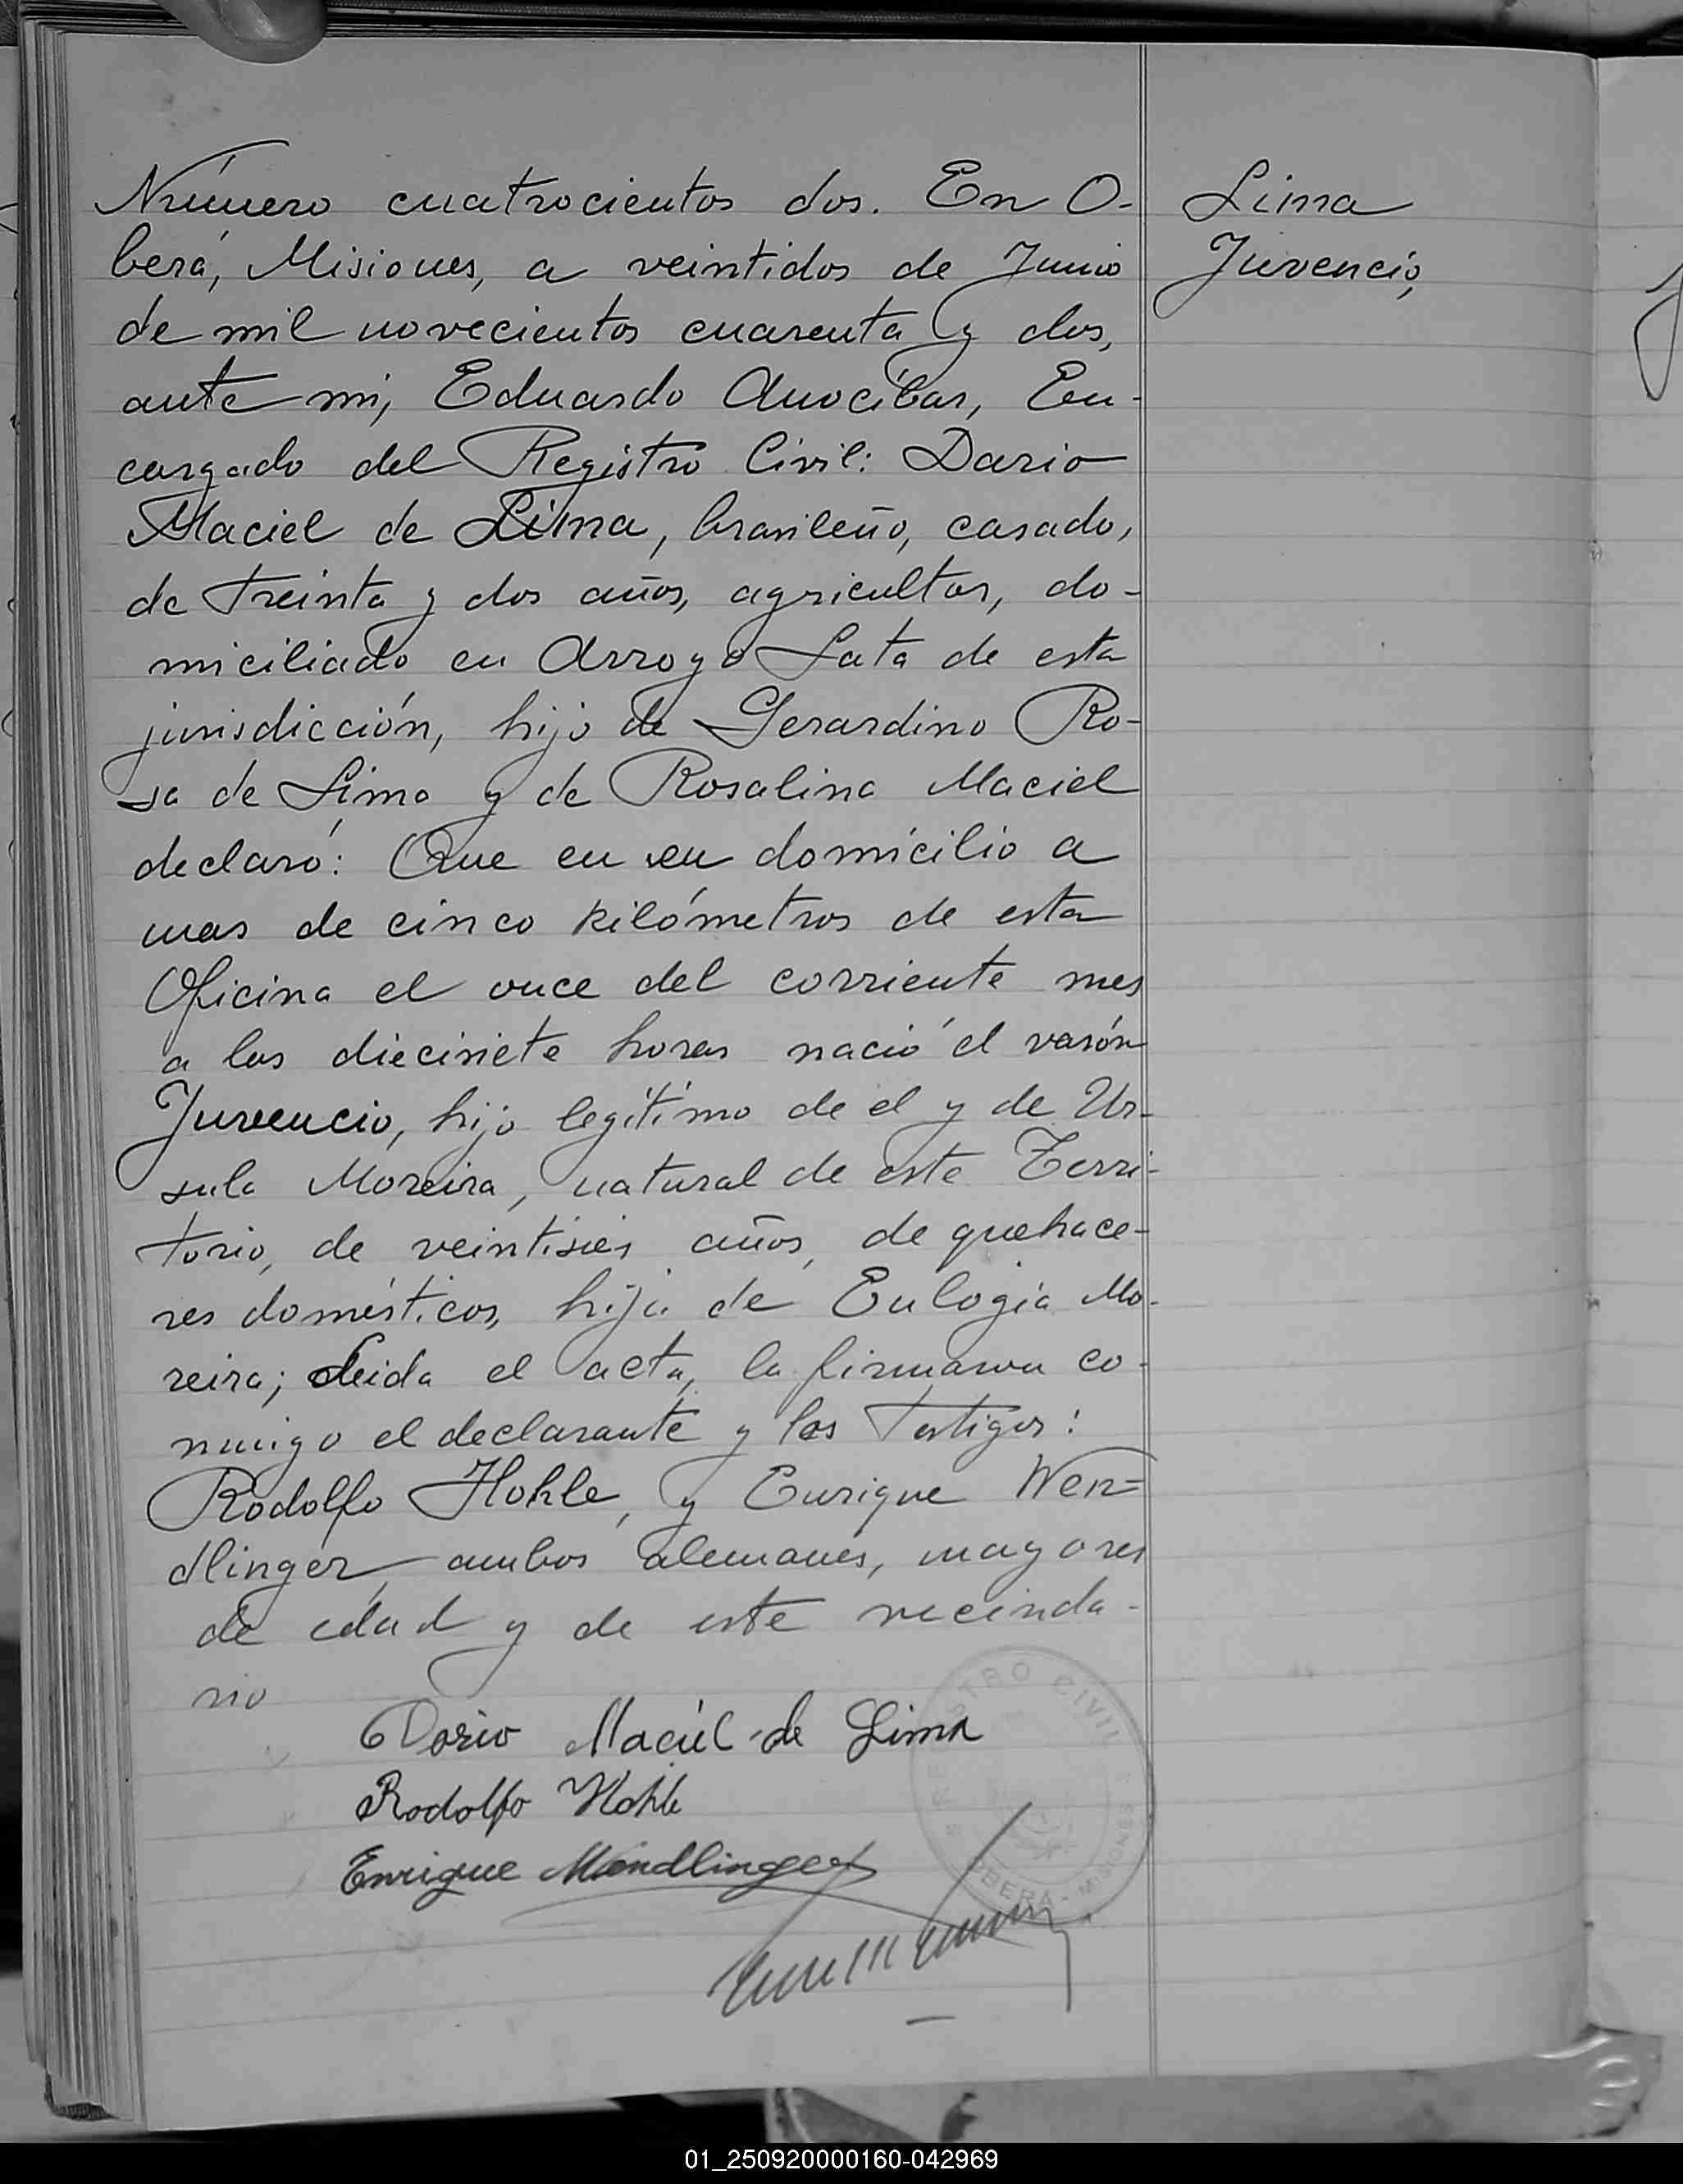 Número cuatrocientos dos. En O-
berá, Misiones, a veintidos de Junio
de mil novecientos cuarenta y dos,
ante mi, Eduardo Anocíbar, En-
cargado del Registro Civil: Dario
Maciel de Lima, brasileño, casado,
de treinta y dos años, agricultor, do-
miciliado en Arroyo Lata de esta
jurisdicción, hijo de Gerardino Ro-
sa de Lima y de Rosalina Maciel
declaró: Que en su domicilio a
mas de cinco kilómetros de esta
Oficina el once del corriente mes
a las diecisiete horas nació el varón
Juvencio, hijo legítimo de el y de Ur-
sula Moreira, natural de este Terri-
torio, de veintiseis años, de quehace-
res domésticos, hija de Eulogia Mo-
reira; Leida el acta, la firmaron co-
nmigo el declarante y los testigos:
Rodolfo Hohle, y Enrique Wen=
dlinger, ambos alemanes, mayores
de edad y de este vecinda-
rio
Lima
Juvencio,
Dorio Maciel de Lima
Rodolfo Hohle
Enrique Wendlinger
REGISTRO CIVIL
OBERA - MISIONES
01_250920000160-042969